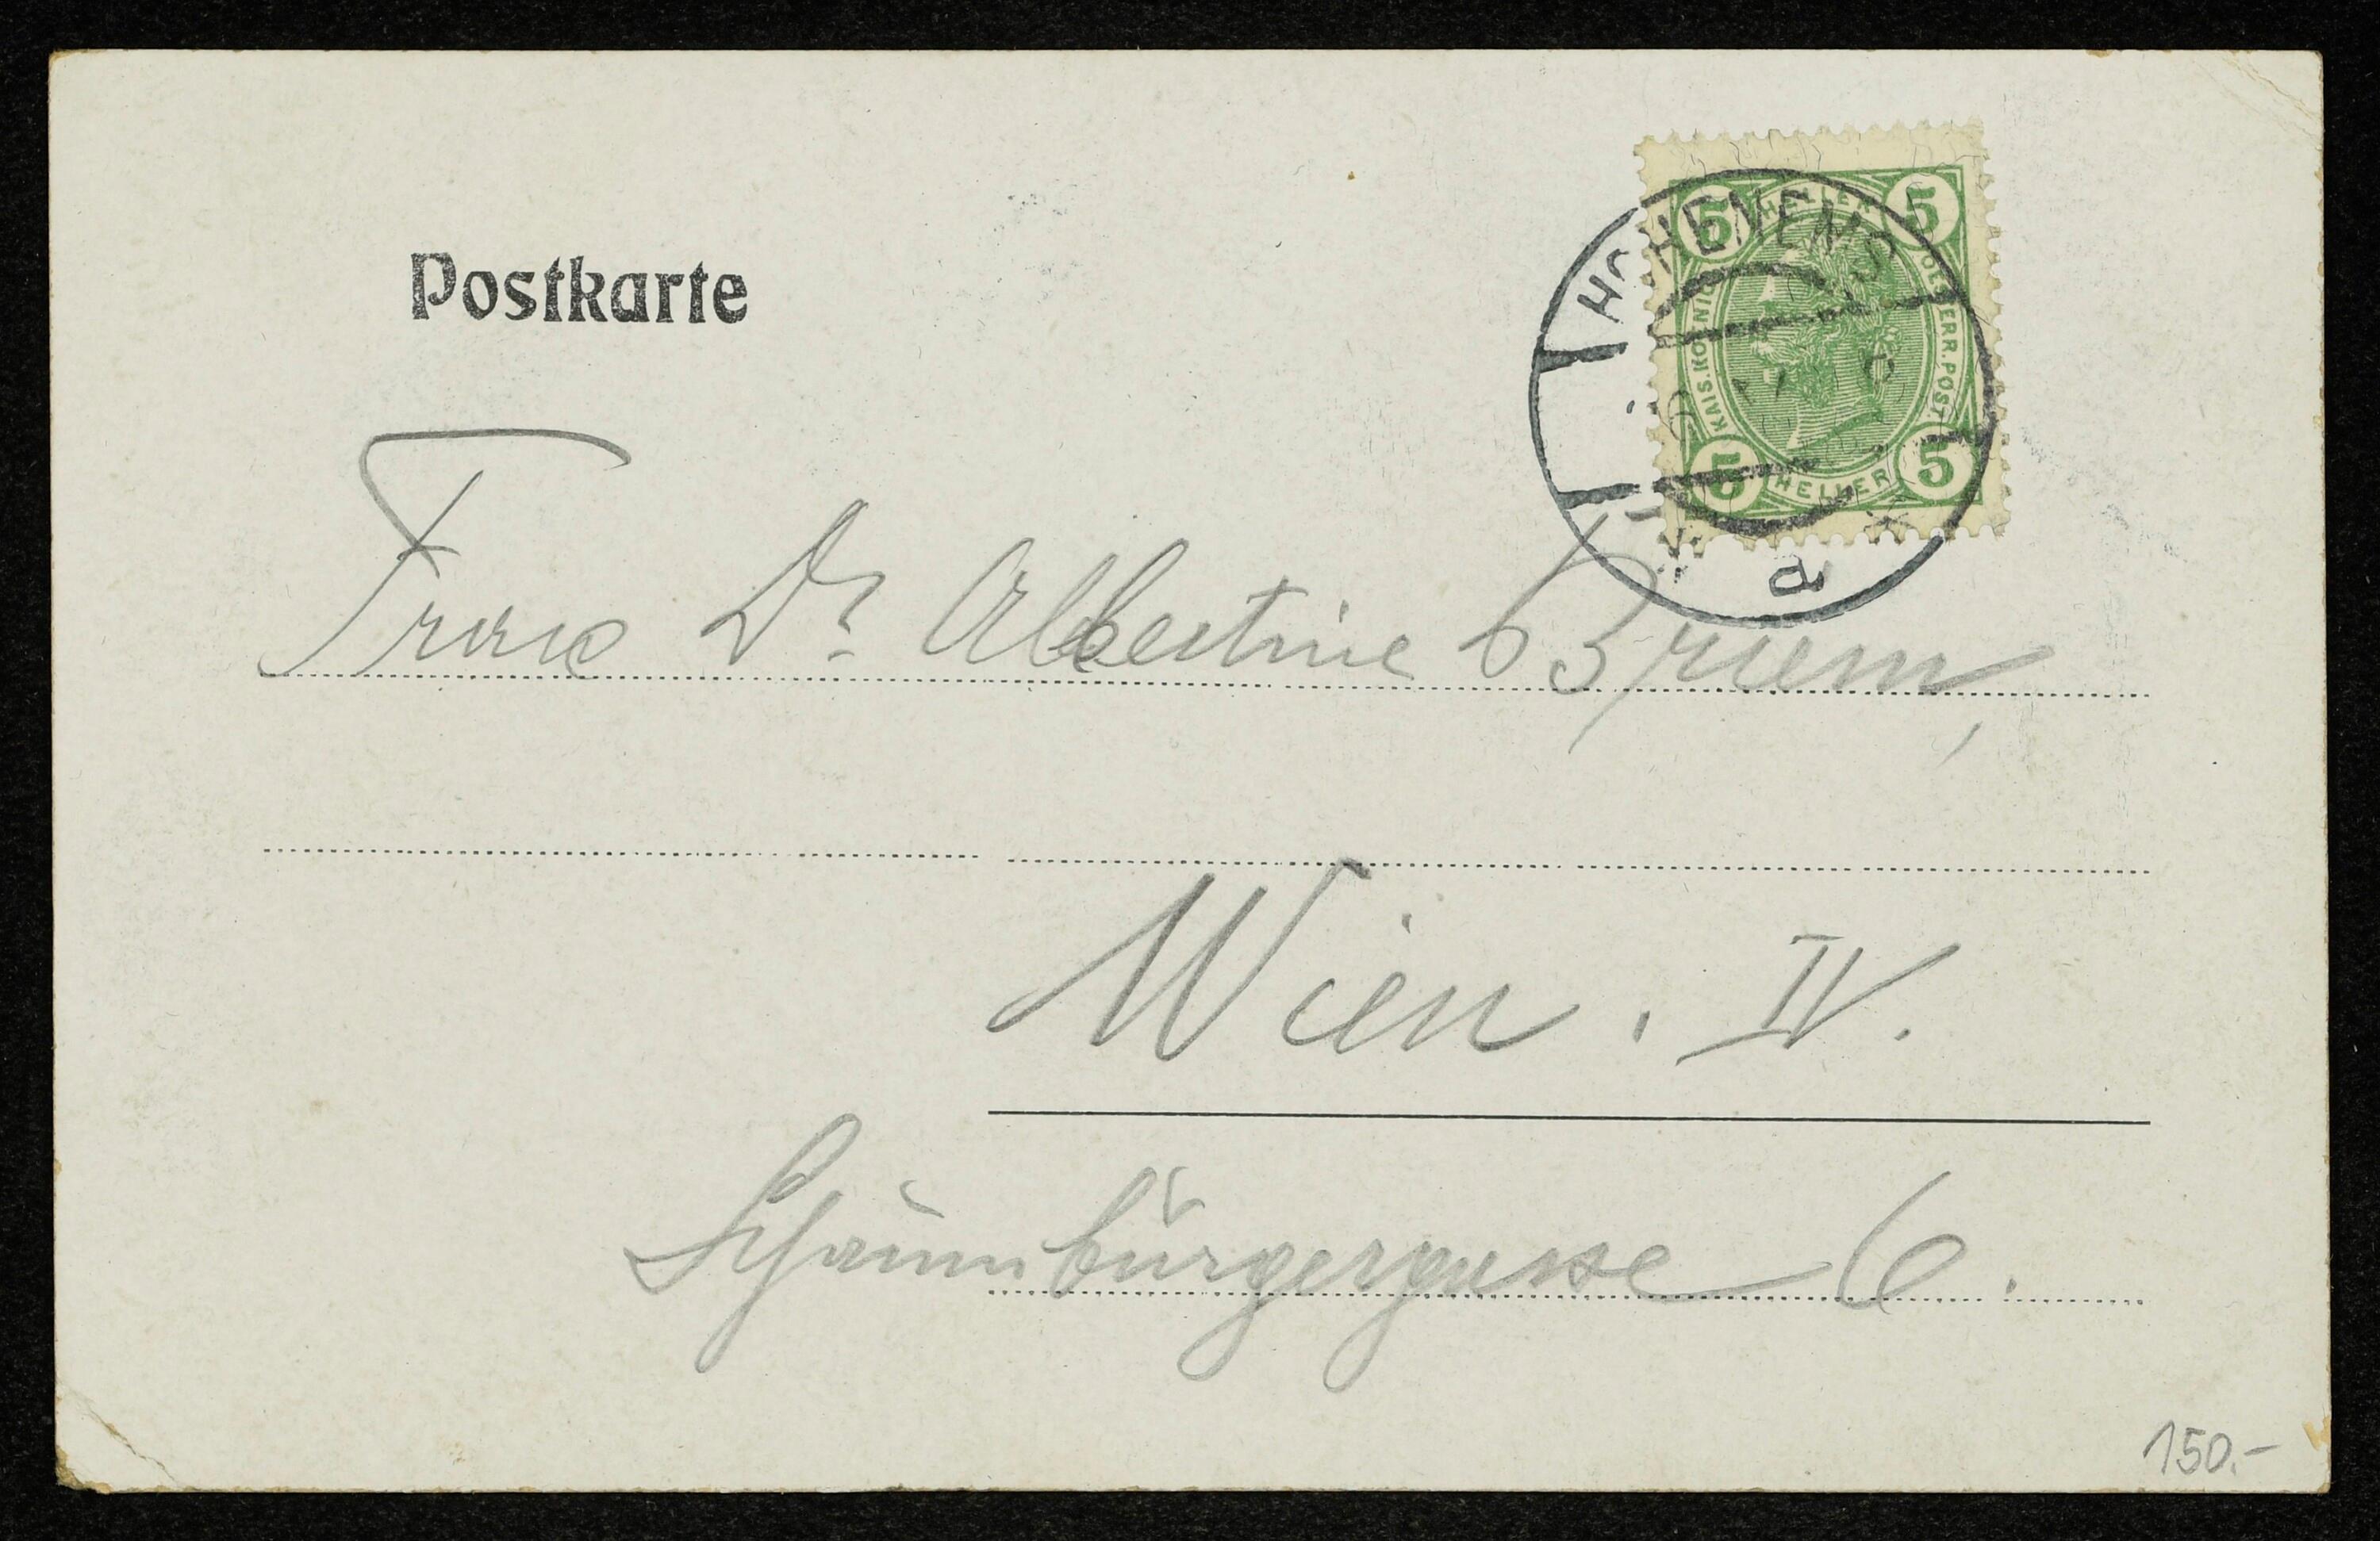 Postkarte
5 HELLER 5
KAIS. KÖNIGL. ÖSTERR. POST.
5 HELLER 5
HOHENEMS
a
Frau Dr Albertine Brüem,
Wien. IV.
Schaumburgergasse 6.
150.-